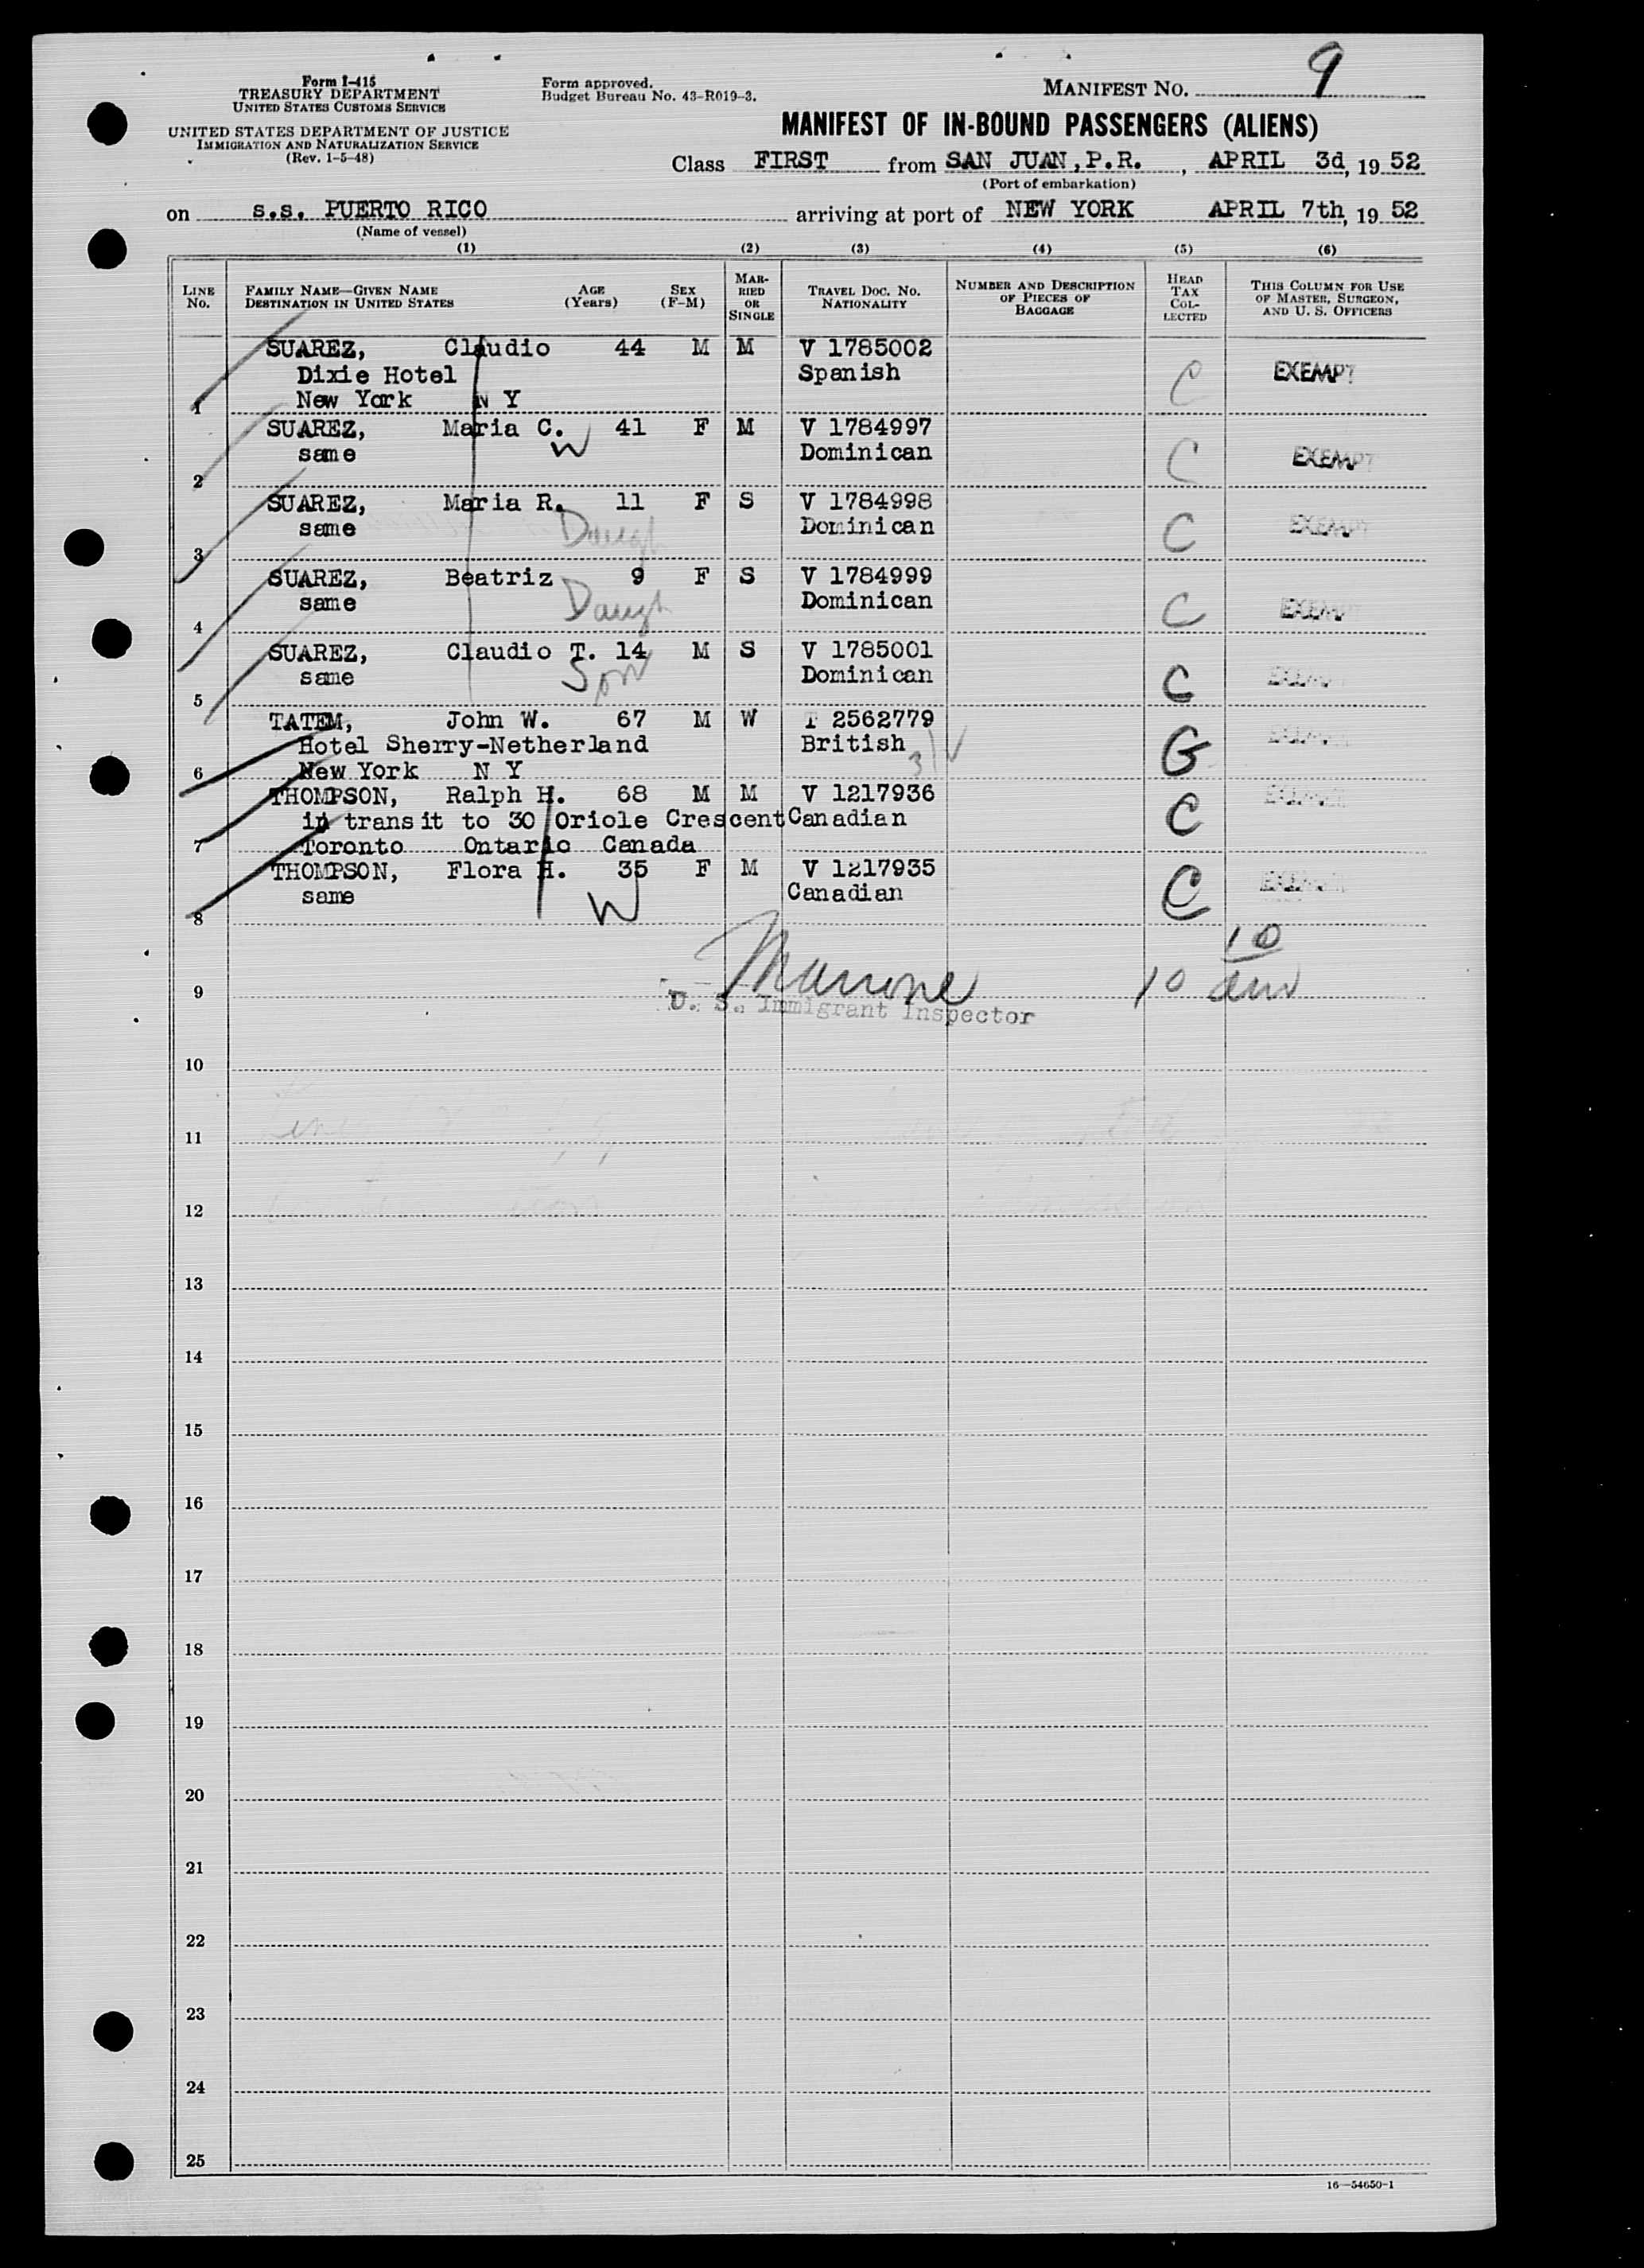 Form I-415
TREASURY DEPARTMENT
UNITED STATES CUSTOMS SERVICE
UNITED STATES DEPARTMENT OF JUSTICE
IMMIGRATION AND NATURALIZATION SERVICE
(Rev. 1-5-48)
Form approved.
Budget Bureau No. 43-R019-3.
MANIFEST NO. 9
MANIFEST OF IN-BOUND PASSENGERS (ALIENS)
Class FIRST from SAN JUAN, P.R., APRIL 3d, 19 52
(Port of embarkation)
on s.s. PUERTO RICO arriving at port of NEW YORK APRIL 7th, 19 52
(Name of vessel)
(1) (2) (3) (4) (5) (6)
LINE No.
FAMILY NAME—GIVEN NAME
DESTINATION IN UNITED STATES
AGE (Years)
SEX (F-M)
MARRIED OR SINGLE
TRAVEL DOC. NO.
NATIONALITY
NUMBER AND DESCRIPTION OF PIECES OF BAGGAGE
HEAD TAX COLLECTED
THIS COLUMN FOR USE OF MASTER, SURGEON, AND U. S. OFFICERS
SUAREZ, Claudio 44 M M V 1785002
Dixie Hotel Spanish C EXEMPT
1 New York N Y
SUAREZ, Maria C. 41 F M V 1784997
same W Dominican C EXEMPT
2
SUAREZ, Maria R. 11 F S V 1784998
same Daugh Dominican C EXEMPT
3
SUAREZ, Beatriz 9 F S V 1784999
same Daugh Dominican C EXEMPT
4
SUAREZ, Claudio T. 14 M S V 1785001
same Son Dominican C EXEMPT
5
TATEM, John W. 67 M W T 2562779
Hotel Sherry-Netherland British G
6 New York N Y
THOMPSON, Ralph H. 68 M M V 1217936
in transit to 30 Oriole Crescent Canadian C
7 Toronto Ontario Canada
THOMPSON, Flora H. 35 F M V 1217935
same W Canadian C
8
10
9 10
U. S. Immigrant Inspector
10
11
12
13
14
15
16
17
18
19
20
21
22
23
24
25
16—54650-1